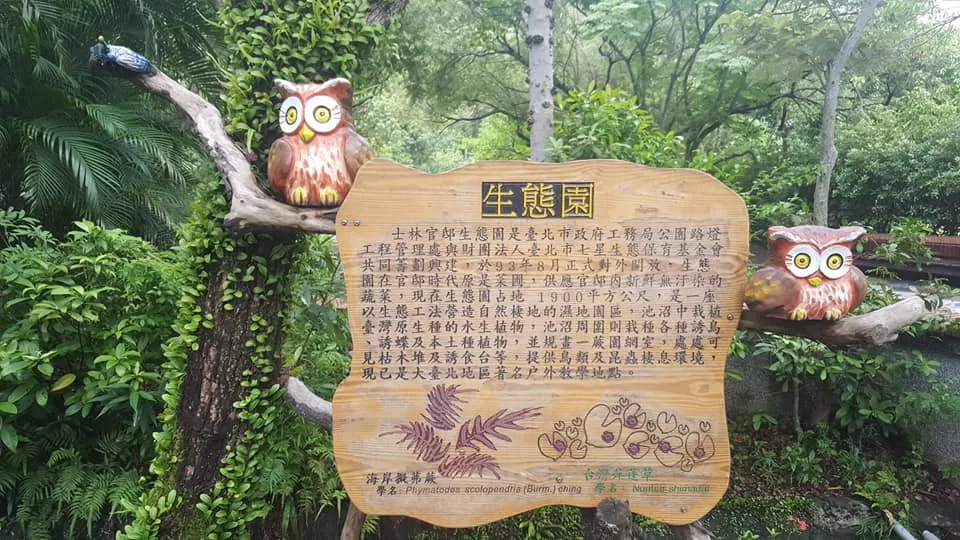 生態園
士林官邸生態園是臺北市政府工務局公園路燈
工程管理處與財團法人臺北市七星生態保育基金會
共同籌劃興建，於93年8月正式對外開放，生態
園在官邸時代原是菜圃，供應官邸內新鮮無汙染的
蔬菜，現在生態園占地 1900平方公尺，是一座
以生態工法營造自然棲地的濕地園區，池沼中栽植
臺灣原生種的水生植物，池沼周圍則栽種各種誘鳥
、誘蝶及本土種植物，並規畫一蕨園網室，處處可
見枯木堆及誘食台等，提供鳥類及昆蟲棲息環境，
現已是大臺北地區著名戶外教學地點。
海岸擬茀蕨
學名：Phymatodes scolopendria (Burm.) ching
台灣萍蓬草
學名： Nuphar shimadai